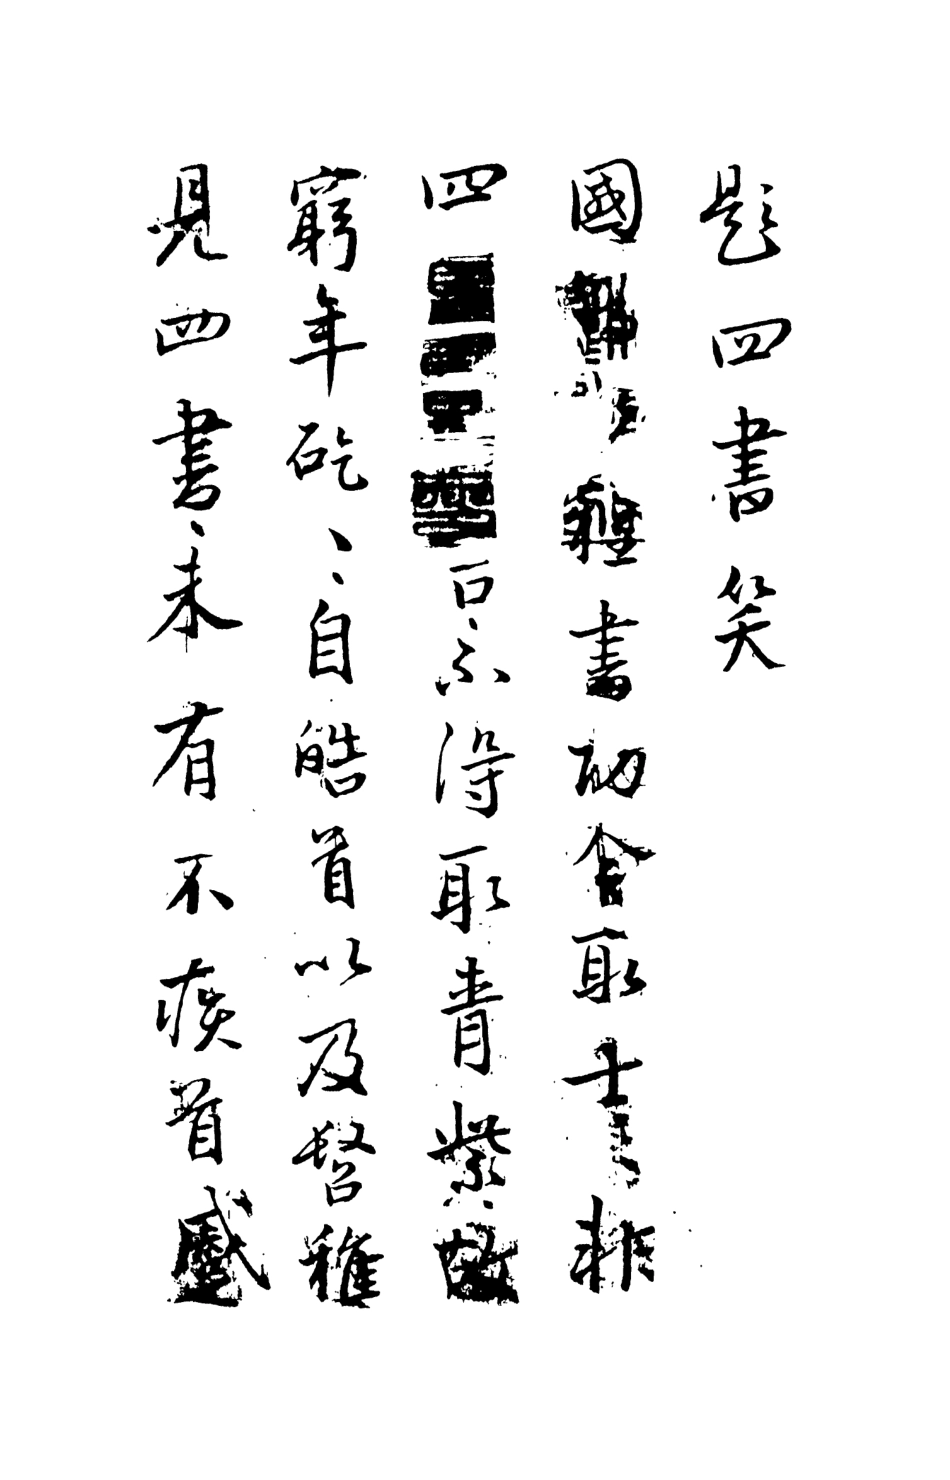 題四書笑
國朝雖書功令取士非
四書不得取青紫故
窮年矻、自皓首以及髫稚
見四書未有不疾首蹙